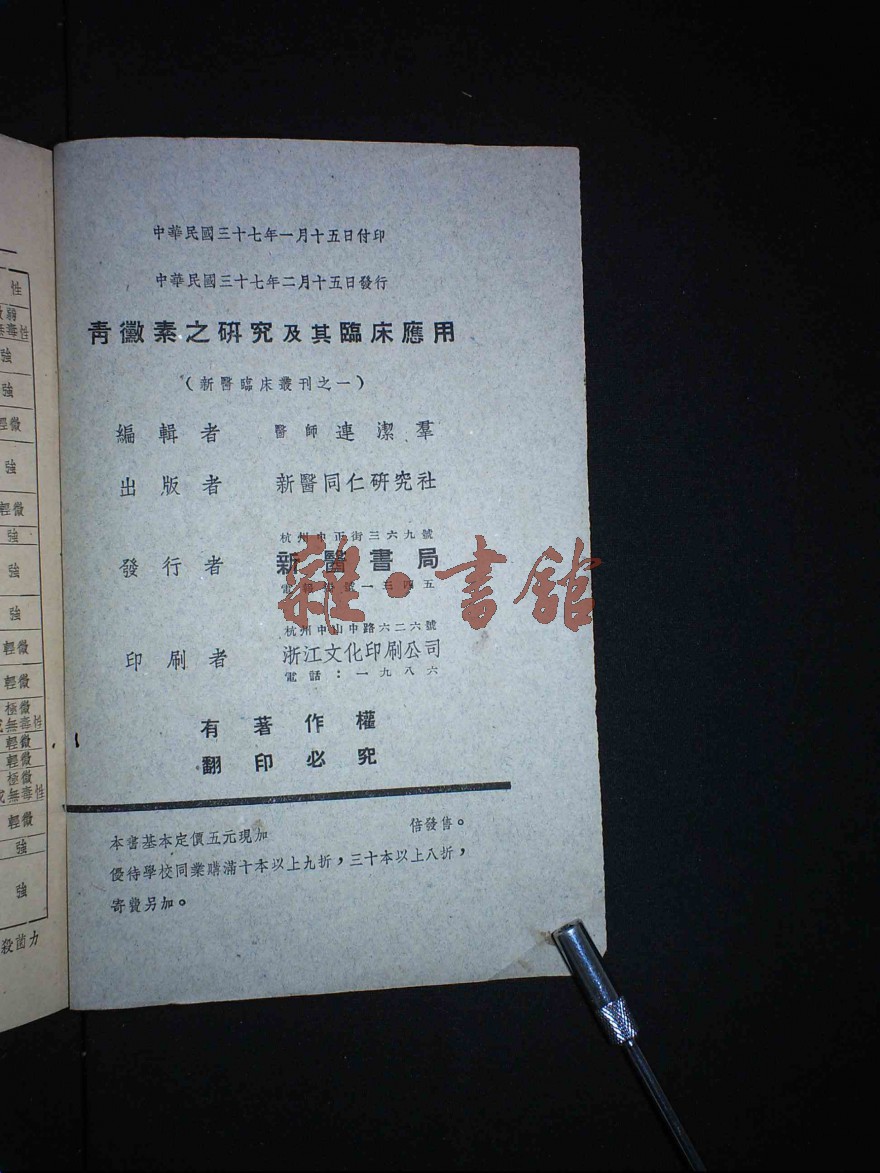 中華民國三十七年一月十五日付印
中華民國三十七年二月十五日發行
青黴素之研究及其臨床應用
（新醫臨床叢刊之一）
編輯者 醫師 連潔羣
出版者 新醫同仁研究社
杭州中正街三六九號
發行者 新醫書局
一三四五
杭州中山中路六二六號
印刷者 浙江文化印刷公司
電話：一九八六
有著作權
翻印必究
本書基本定價五元現加 倍發售。
優待學校同業購滿十本以上九折，三十本以上八折，
寄費另加。
雜·書館
性
無毒性
強
強
輕微
強
輕微
強
強
強
輕微
輕微
極微
或無毒性
輕微
輕微
極微
或無毒性
輕微
強
強
殺菌力